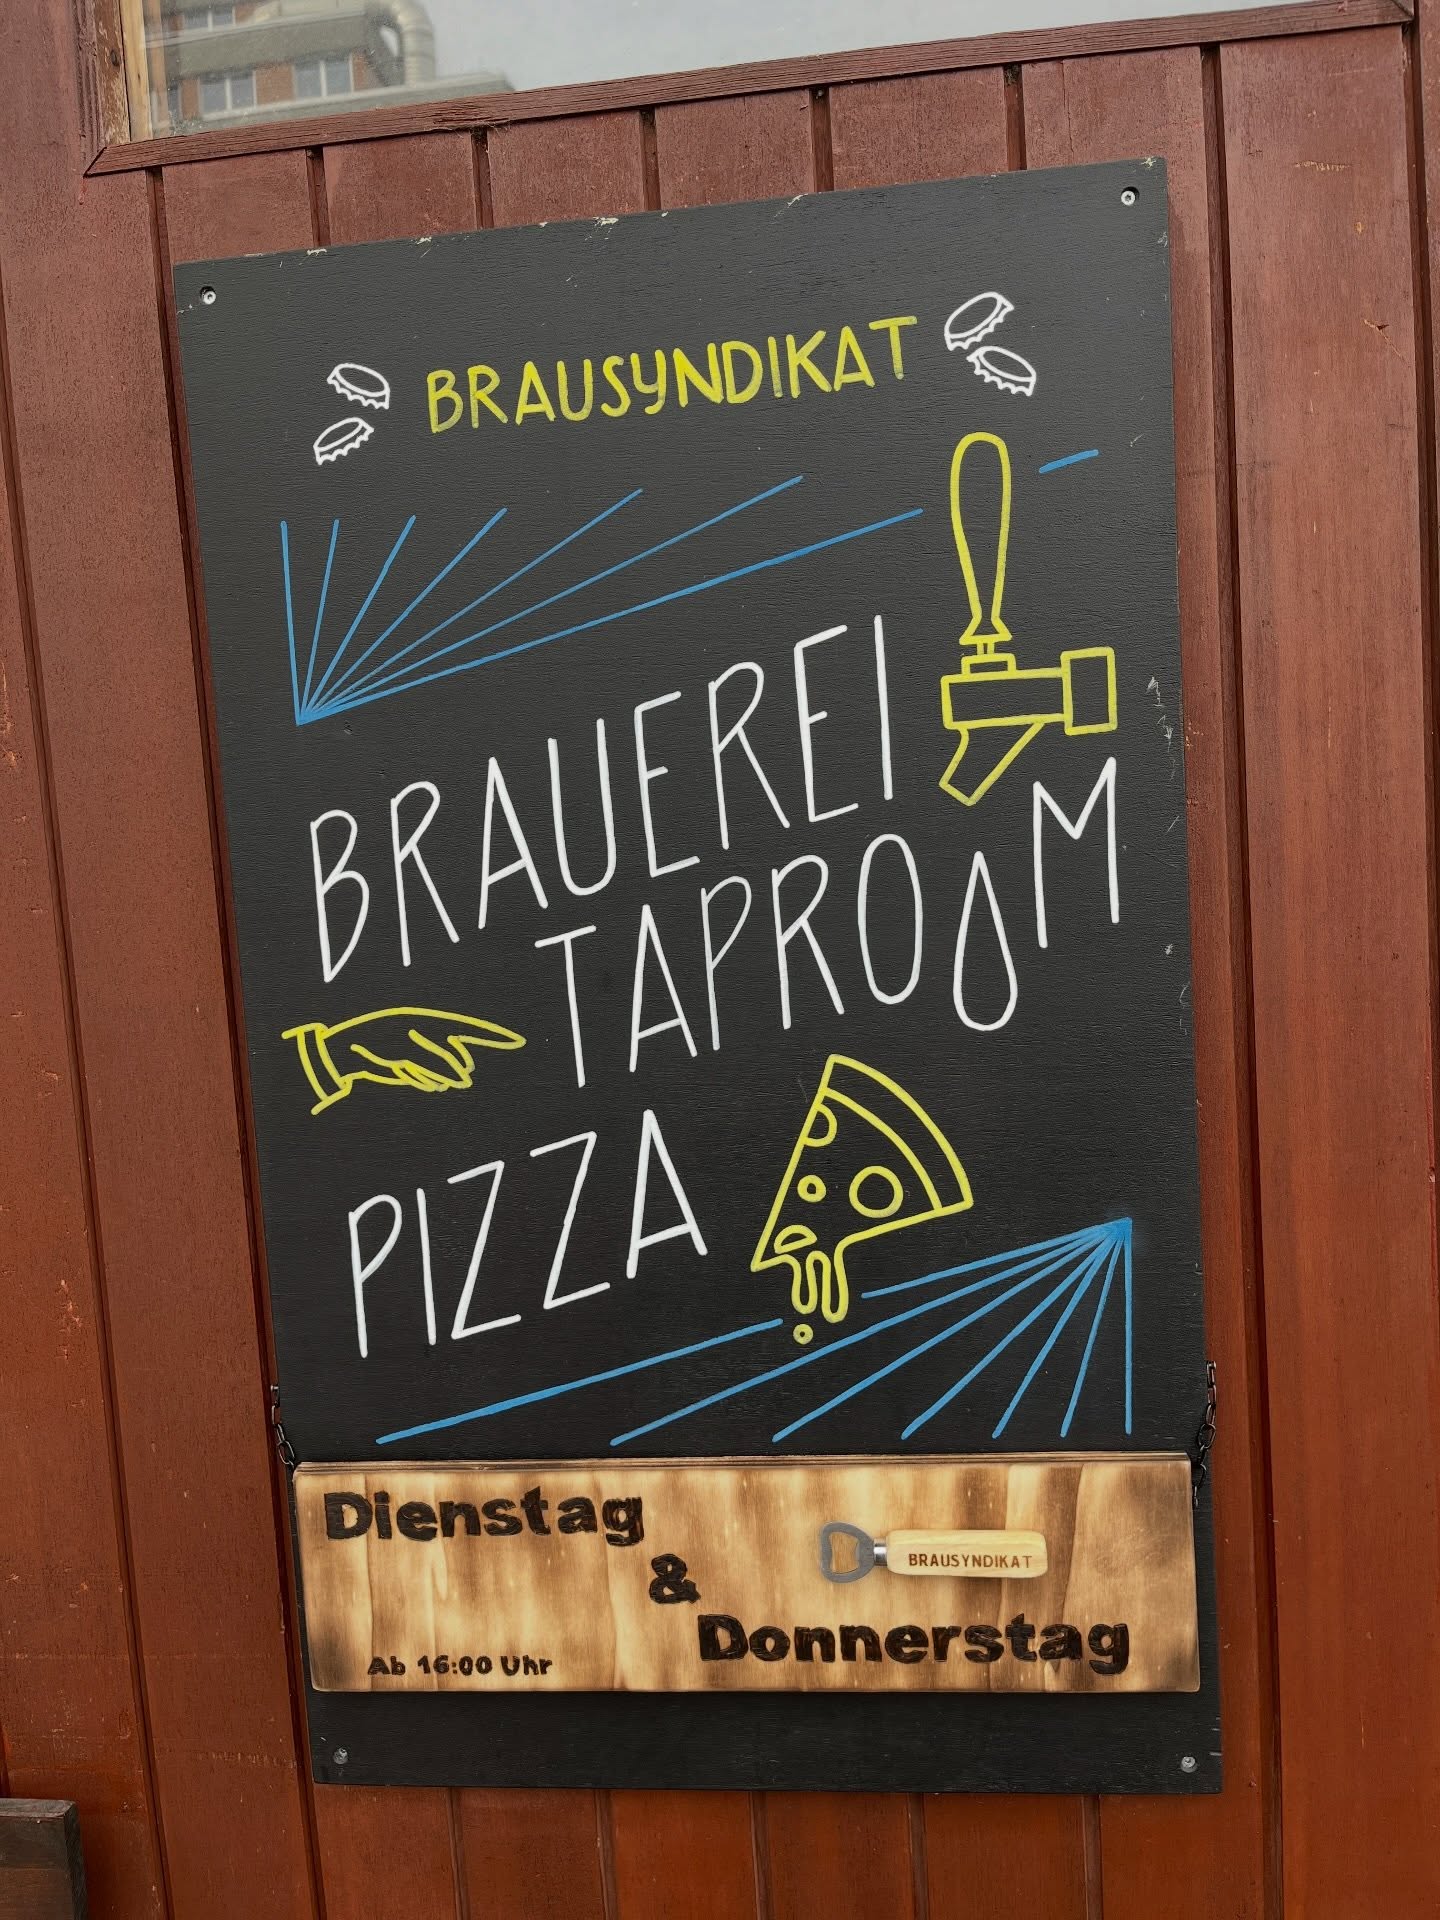 BRAUSYNDIKAT
BRAUEREI
TAPROOM
PIZZA
Dienstag
&
Donnerstag
Ab 16:00 Uhr
BRAUSYNDIKAT